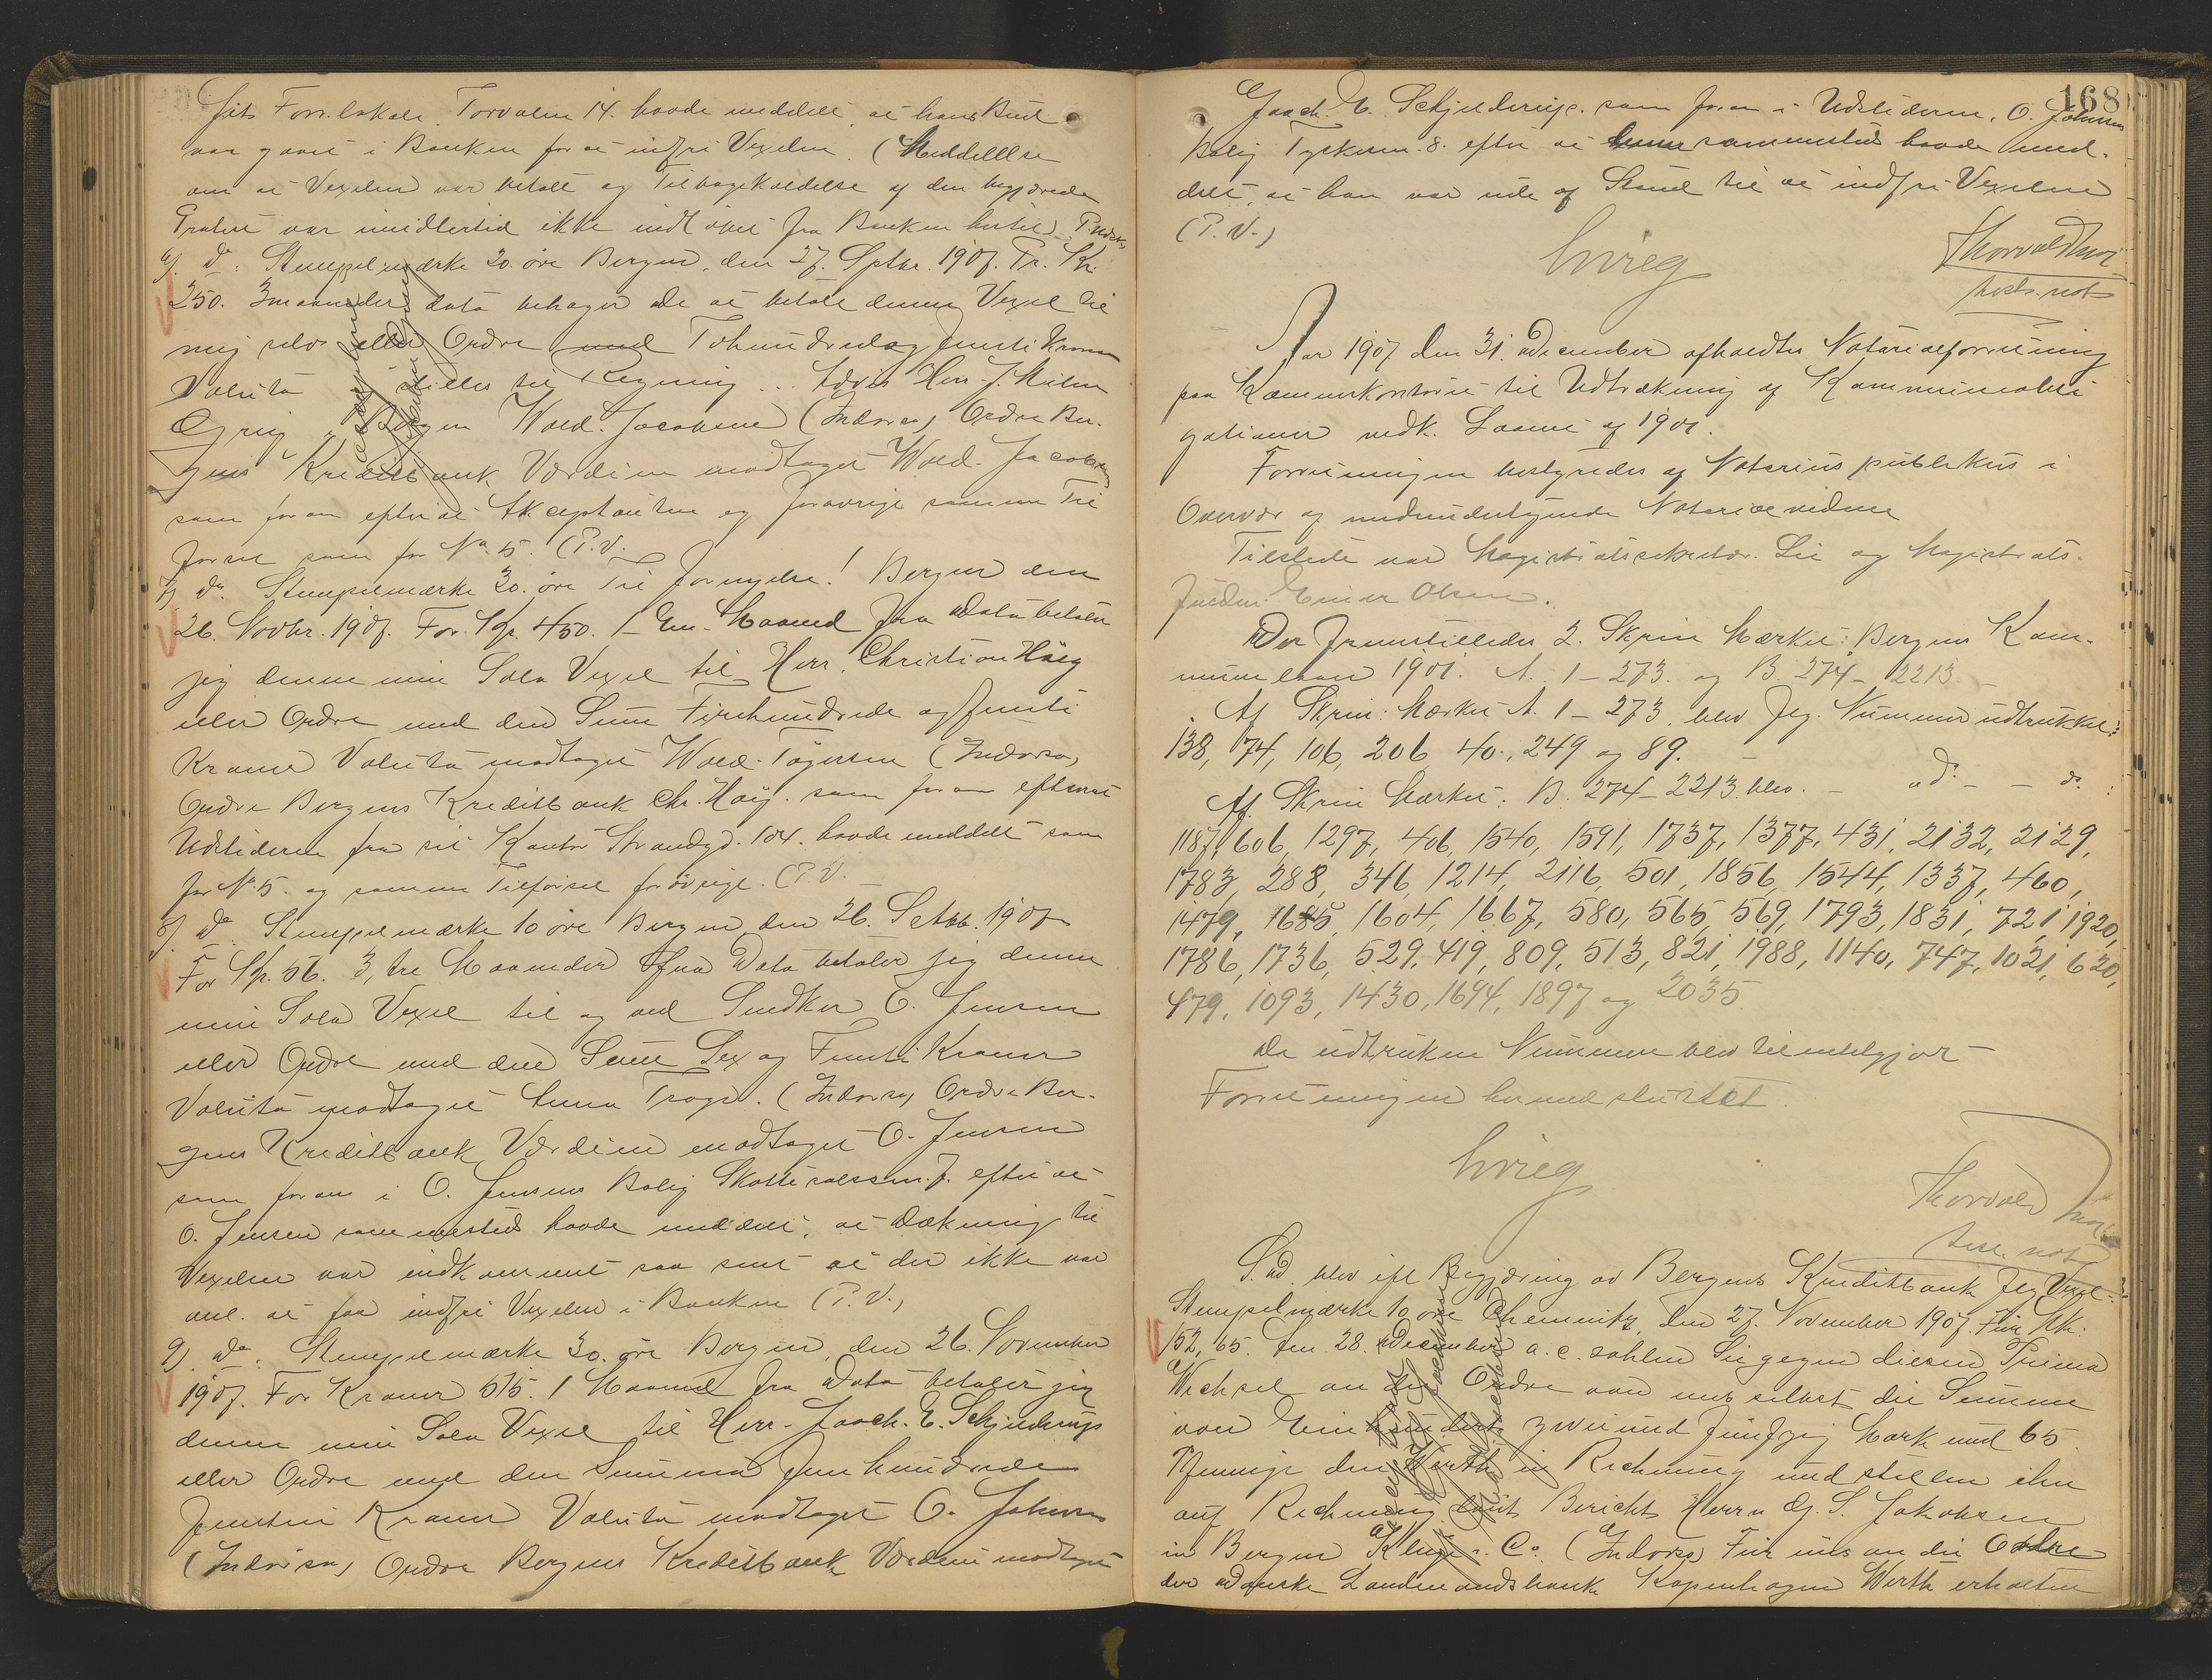 sit Forr.lokale Torvalm 14. havde meddelt, at hans Bud
var gaaet i Banken for at indfri Vexelen. (Meddelelse
om at Vexelen var betalt og Tilbagekaldelse af den begjærede
Protest var imidlertid ikke indløbet fra Banken hertil)
6) do: Stempelmærke 20. øre Bergen, den 27. Septbr. 1907. Kr.
250. 3 maaneder dato behager De at betale denne Vexel til
mig selv eller Ordre med Tohundredeogfemti Kroner
Valuta stilles til Regning. Herr J. Milon
Grieg i Bergen Wold. Jacobsen (Indorso) Ordre Ber-
gens Kreditbank Værdien modtaget Wold. Jacobsen
som foran efter at Akceptanten og forøvrigt samme Til
førsel som for No. 5. (P.V.
7) do. Stempelmærke 20. øre Til Fornyelse! Bergen den
26. Novbr. 1907. For Kr. 450. 1 En. Maaned fra Dato betaler
jeg denne min Sola Vexel til Herr Christian Høeg
eller Ordre med den Sum Firehundrede og femti
Kroner Valuta modtaget Wold. Tøgersen (Indorso)
Ordre Bergens Kreditbank Chr. Høeg. som foran efterat
Udstederen fra sit Kontor Strandgd. 104. havde meddelt som
for No. 5. og samme Tilførsel forøvrigt. (P.V.
8) do. Stempelmærke 10 øre Bergen den 26. Septbr. 1907
For Kr. 56. 3, tre Maaneder fra Dato betaler jeg denne
min Sola Vexel til og ved Snedker O. Jensen
eller Ordre med den Sum Sex og Femti Kroner
Valuta modtaget Anna (Indorso) Ordre Ber-
gens Kreditbank Værdien modtaget O. Jensen
som foran i O. Jensens Bolig 7. efter at
O. Jensen sammesteds havde meddelt, at Dækning til
Vexelen var indkommet saa sent at der ikke var
anl. at faa indfri Vexelen i Banken (P.V.)
9) do: Stempelmærke 30. øre Bergen, den 26. November
1907. For Kroner 515. 1 Maaned fra Dato betaler jeg
denne min Sola Vexel til Herr Joach. E. Schjelderup
eller Ordre med den Summa Femhundrede
femten Kroner Valuta modtaget O. Johnsen
(Indorso) Ordre Bergens Kreditbank Værdien modtaget
168
Joach. E. Schjelderup. som foran i Udstederen, O. Johnsen
Bolig 8. efter at han sammesteds havde med-
delt, at han var ude af Stand til at indfri Vexelen
(P.V.)
Aar 1907 den 31. December afholdtes Notarialforretning
paa Kæmnerkontoret til Udtrækning af Kommuneobli
gationer vedk. Laanet af 1901.
Forretningen bestyredes af Notarius publikus i
Overvær af medundertegnede Notarialvidne
Tilstede var Magistratssekretær Lie og Magistrats-
fuldm. Einer Olsen.
Der fremstilledes 2. Skrin Mærket: Bergens Kom-
munelaan 1901. A. 1 - 273. og B. 274 - 2213.
Af Skrin: Mærket A. 1 - 273. blev flg. Nummer udtrukket:
138, 74, 106, 206, 40, 249 og 89.
Af Skrin Mærket: B. 274 - 2213. blev. - do - - do. :
1187, 606, 1297, 406, 1540, 1591, 1737, 1377, 431, 2132, 2129,
1783, 288, 346, 1214, 2116, 501, 1856, 1544, 1337, 460,
1479, 1685, 1604, 1667, 580, 565, 569, 1793, 1831, 721, 1920,
1786, 1736, 529, 419, 809, 513, 821, 1988, 1140, 747, 1021, 620,
479, 1093, 1430, 1694, 1897 og 2035.
De udtrukne Nummere blev tilintetgjort
Forretningen hermed sluttet.
S.d. blev eft Begjæring av Bergens Kreditbank flg Vexel:
Stempelmærke 10 øre Chemnitz, den 27. November 1907. Für Mk.
152,65. Am 28. December a.c. zahlen Sie gegen diesen Prima
Wechsel an die Ordre von uns selbst die Summe
von Einhundert zweiund fünfzig Mark und 65
Pfennige den Werth in Rechnung und stellen ihn
auf Rechnung laut Bericht Herrn J. S. Jakobsen
in Bergen Klinge & Co. (Indorso) Für uns an die Ordre
der danske Landmandsbank Kopenhagen Werth erhalten